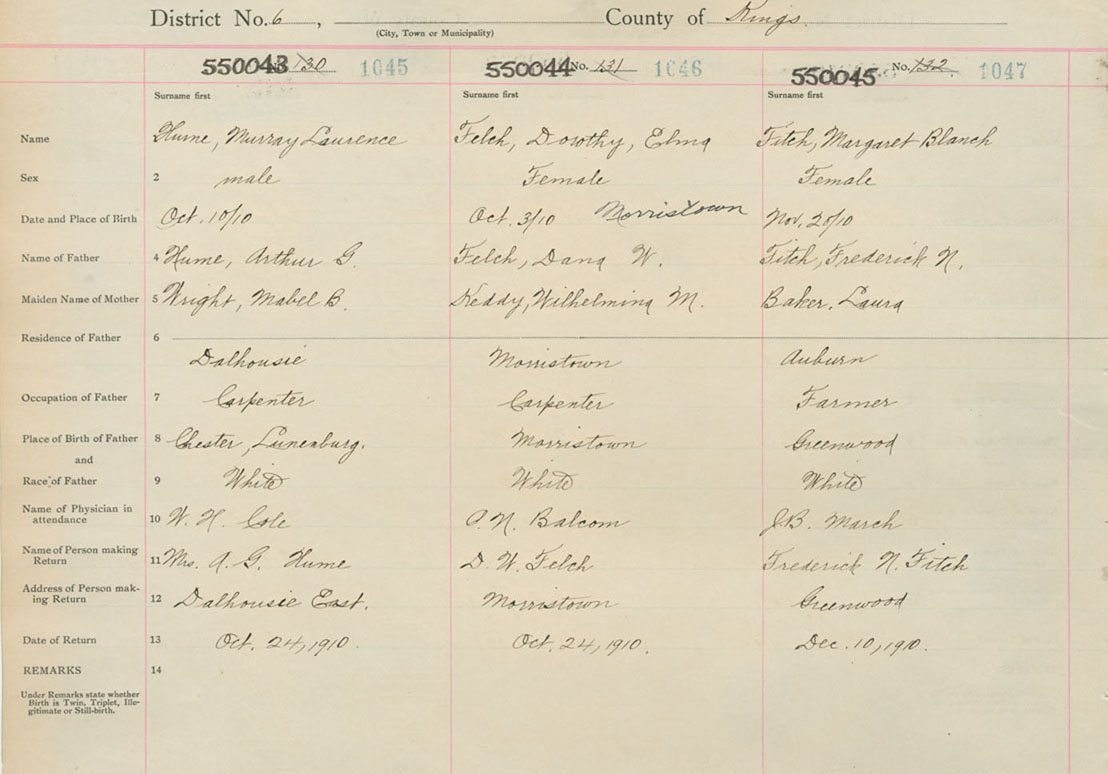 District No. 6, County of Kings
(City, Town or Municipality)
550043 No. 130 1045 550044 No. 131 1046 550045 No. 132 1047
Surname first Surname first Surname first
Name Hume, Murray Laurence Felch, Dorothy, Elma Fitch, Margaret Blanch
Sex 2 male Female Female
Date and Place of Birth Oct. 10/10 Oct. 3/10 Morristown Nov. 20/10
Name of Father 4 Hume, Arthur G. Felch, Dana W. Fitch, Frederick N.
Maiden Name of Mother 5 Wright, Mabel B. Keddy, Wilhelmina M. Baker, Laura
Residence of Father 6
Dalhousie Morristown Auburn
Occupation of Father 7 Carpenter Carpenter Farmer
Place of Birth of Father 8 Chester, Lunenburg. Morristown Greenwood
and
Race of Father 9 White White White
Name of Physician in
attendance 10 W. H. Cole P. N. Balcom J.B. March
Name of Person making
Return 11 Mrs. A. G. Hume D. W. Felch Frederick N. Fitch
Address of Person mak-
ing Return 12 Dalhousie East. Morristown Greenwood
Date of Return 13 Oct. 24, 1910. Oct. 24, 1910. Dec. 10, 1910.
REMARKS 14
Under Remarks state whether
Birth is Twin, Triplet, Ille-
gitimate or Still-birth.